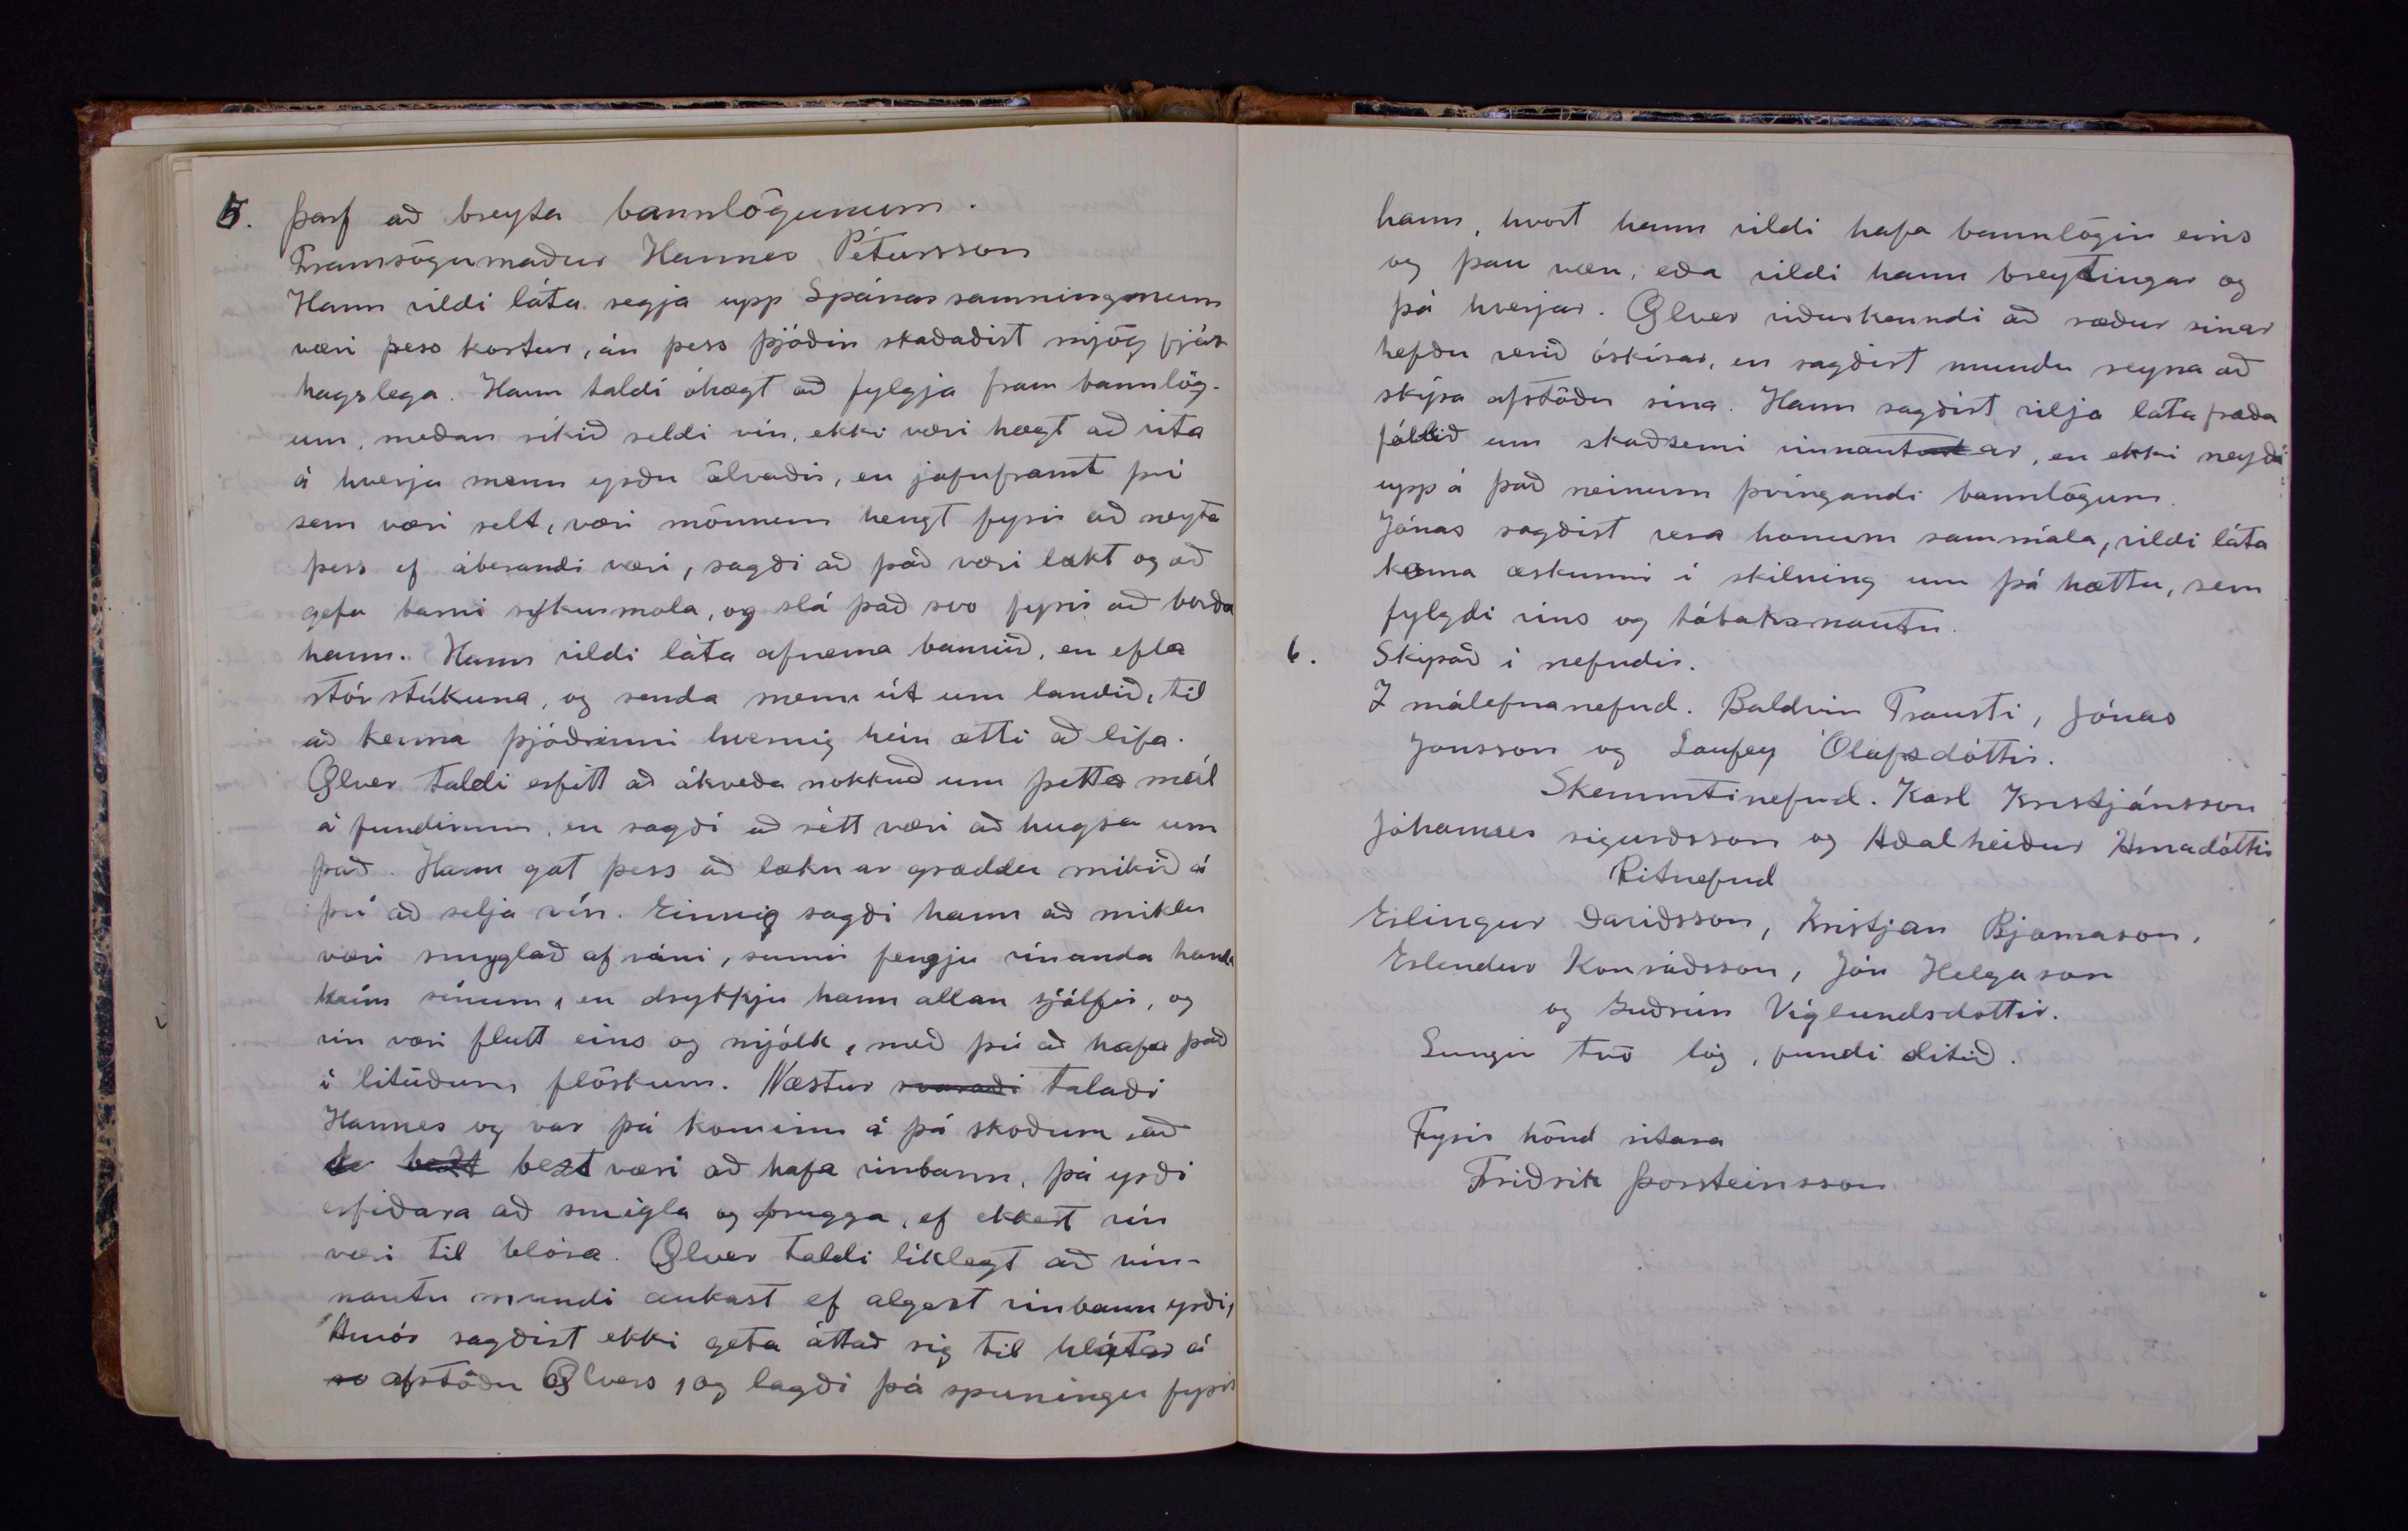 5. Þarf að breyta bannlögunum.
Framsögumaður Hannes Pétursson
Hann vildi láta segja upp Spánarsamningonum
væri þess kostur, án þess þjóðin skaðaðist mjög fjár
hagslega. Hann taldi óhægt að fylgja fram bannlög-
um, meðan ríkið seldi vín, ekki væri hægt að vita
á hverju menn yrðu ölvaðir, en jafnframt því
sem væri selt, væri mönnum hengt fyrir að neyta
þess ef áberandi væri, sagði að það væri lakt og að
gefa barni sykurmola, og slá það svo fyrir að borða
hann. Hann vildi láta afnema bannið, en efla
stórstúkuna, og senda menn út um landið, til
að kenna þjóðinni hvernig hún ætti að lifa.
Ølver taldi erfitt að ákveða nokkuð um þetta mál
á fundinum, en sagði að rétt væri að hugsa um
það. Hann gat þess að læknar græddu mikið á
því að selja vín. Einnig sagði hann að miklu
væri smyglað af víni, sumir fengju vínanda handa
kúm sínum, en drykkju hann allan sjálfir, og
vín væri flutt eins og mjólk, með því að hafa það
í lituðum flöskum. Næstur svaraði talaði
Hannes og var þá kominn á þá skoðum, að
bezt bezt væri að hafa vínbann, þá yrði
erfiðara að smigla og brugga, ef ekkert vín
væri til blóra. Ølver taldi líklegt að vín-
nautn mundi aukast ef algert vínbann yrði,
Arnór sagðist ekki geta áttað sig til hlýtar á
so afstöðu Ølvers, og lagði þá spurningu fyrir
hann, hvort hann vildi hafa bannlögin eins
og þau væru, eða vildi hann breytingar og
þá hverjar. Ølver viðurkenndi að ræður sínar
hefðu verið óskírar, en sagðist mundu reyna að
skýra afstöðu sína. Hann sagðist vilja láta fræða
fólkið um skaðsemi vínnautnar, en ekki neyða
upp á það neinum þvingandi bannlögum.
Jónas sagðist vera honum sammála, vildi láta
koma æskunni í skilning um þá hættu, sem
fylgdi víns og tóbaksnautn.
6. Skipað í nefndir.
Í málefnanefnd. Baldvin Trausti, Jónas
Jonsson og Laufey Ólafsdóttir.
Skemmtinefnd. Karl Kristjánsson
Jóhannes sigurðsson og Aðalheiður Arnadóttir
Ritnefnd
Erlingur Davíðsson, Kristjan Bjarnason,
Erlendur Konráðsson, Jón Helgason
og Guðrún Víglundsdottir.
Sungin tvö lög, fundi slitið.
Fyrir hönd ritara
Friðrik Þorsteinsson